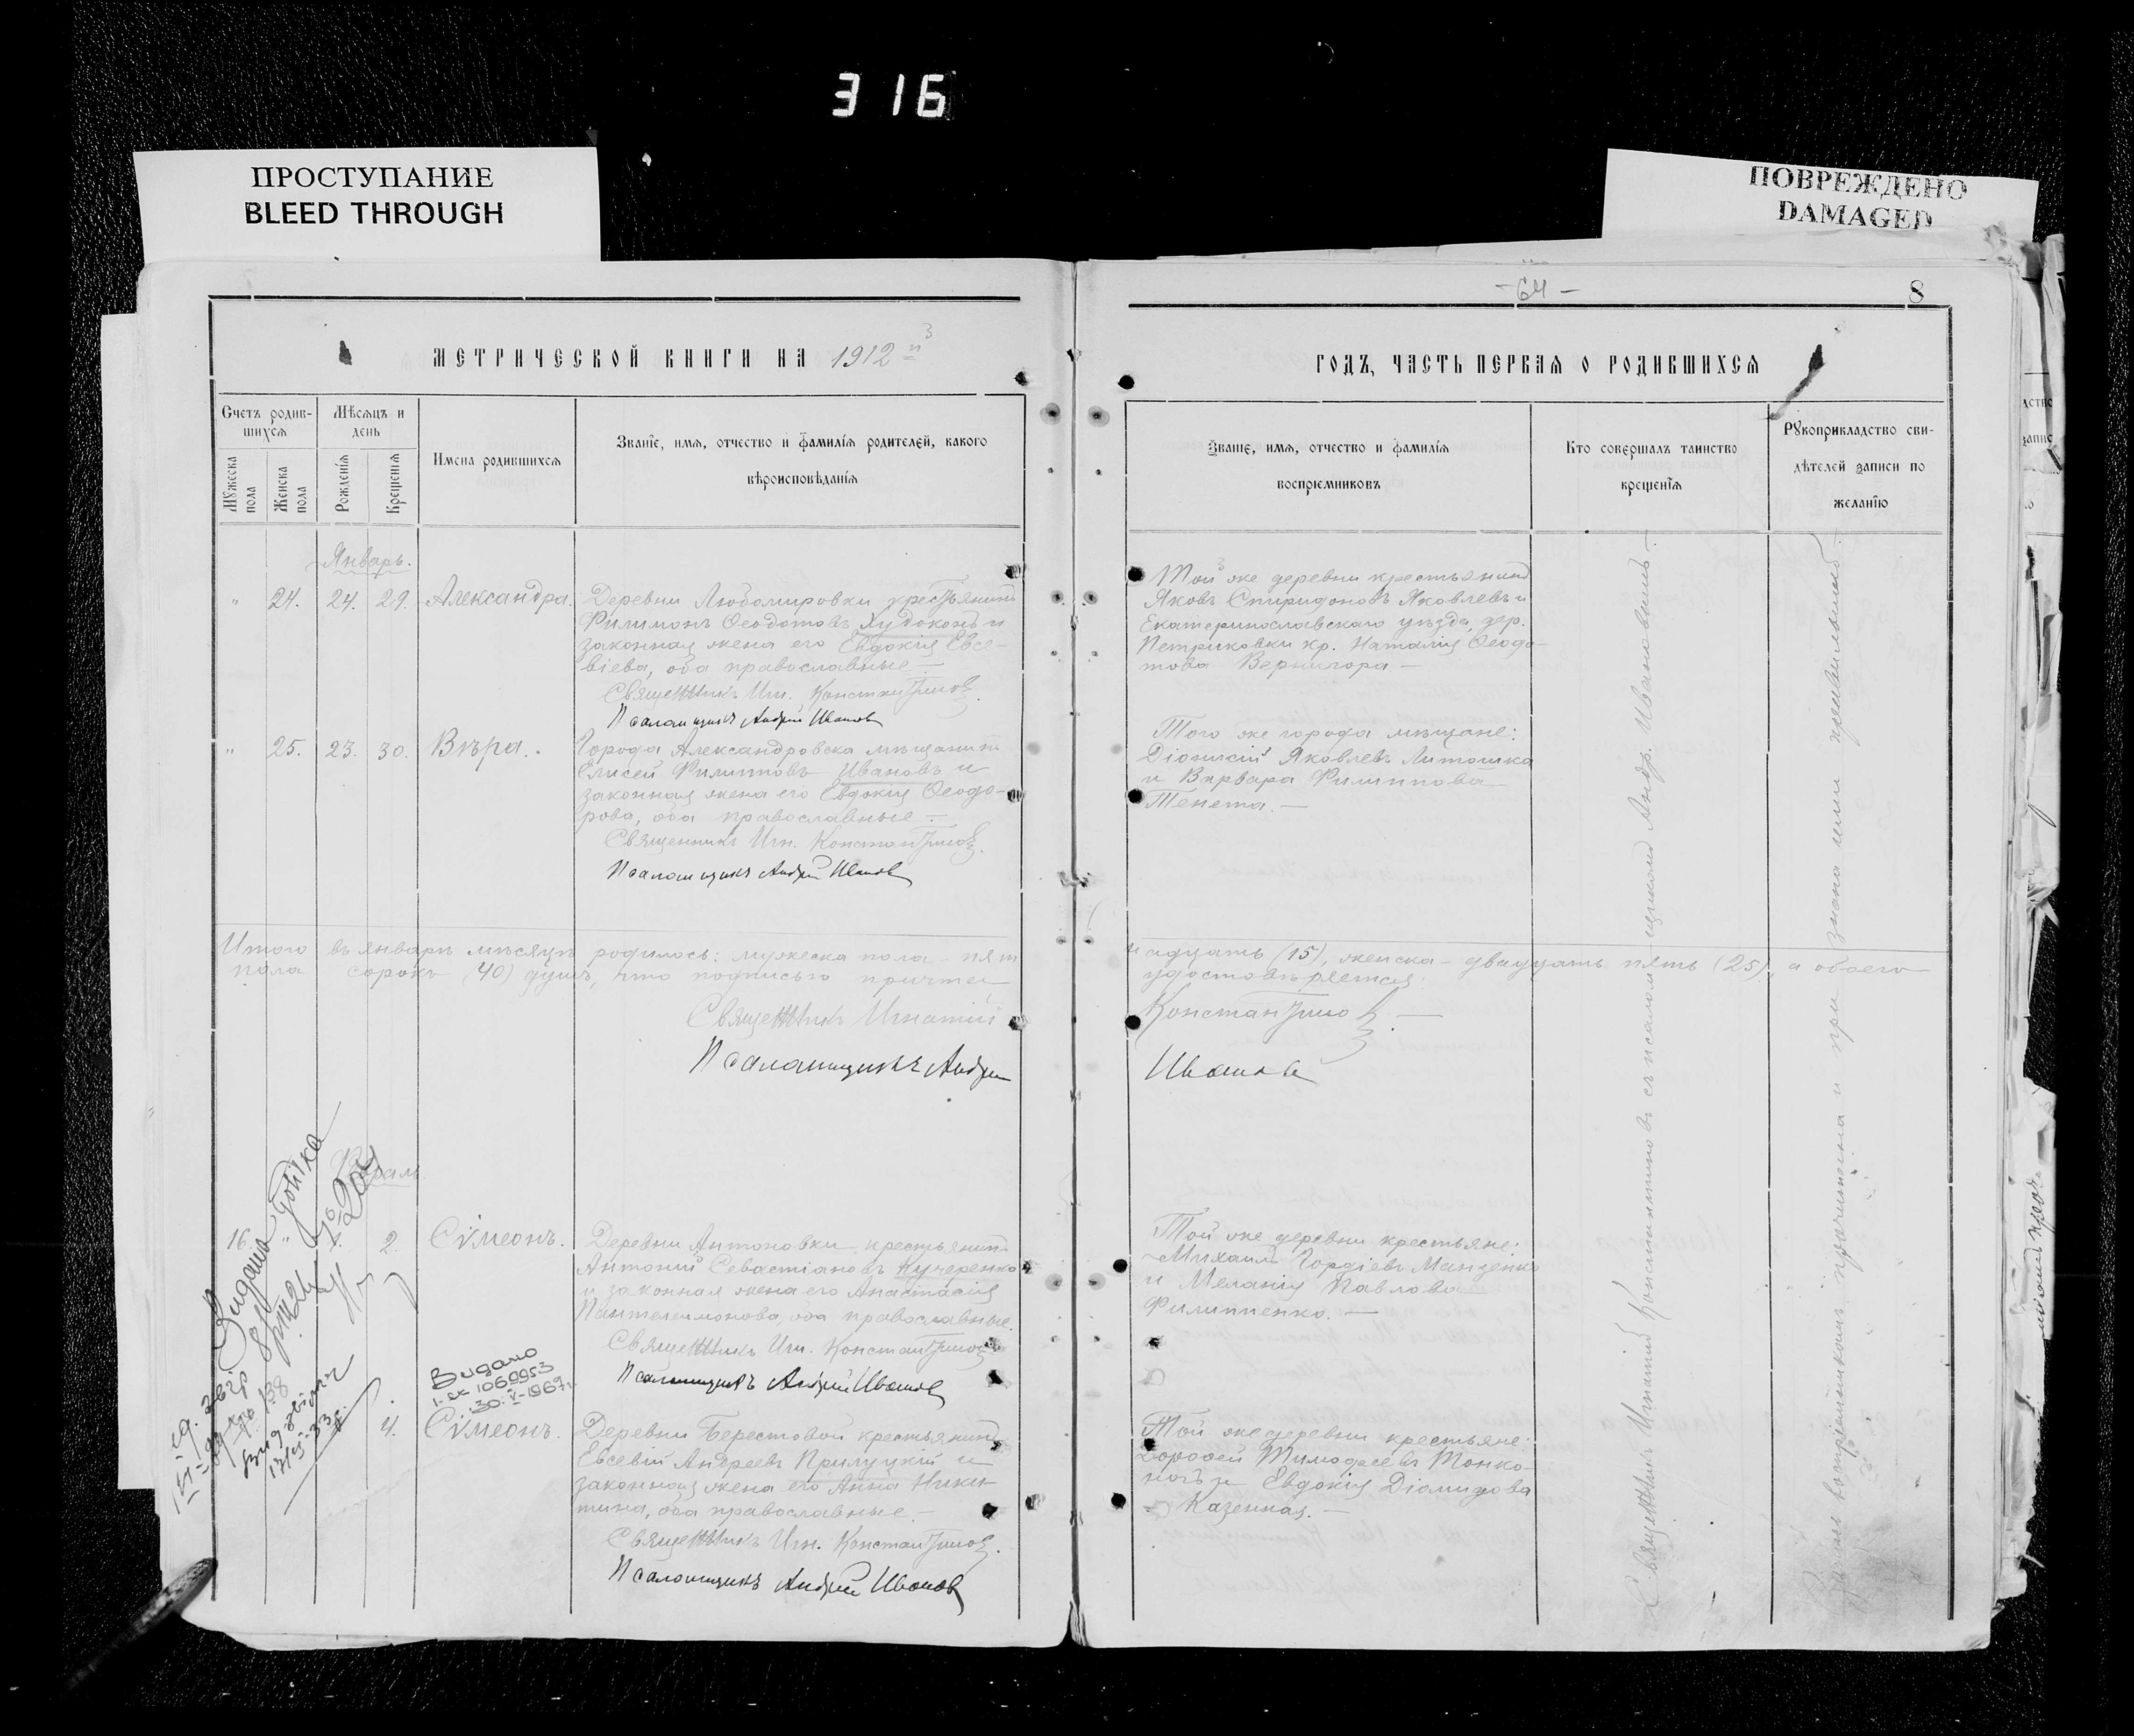 316
ПРОСТУПАНИЕ
BLEED THROUGH
ПОВРЕЖДЕНО
DAMAGED
МЕТРИЧЕСКОЙ КНИГИ НА 1912 й
Счетъ родив-
шихся
Мужеска
пола
Женска
пола
Мѣсяцъ и
день
Рожденія
Крещенія
Имена родившихся
Званіе, имя, отчество и фамилія родителей, какого
вѣроисповѣданія
Январь.
" 24. 24. 29. Александра.
Деревни Любомировки крестьянинъ
Филимонъ Ѳеодотовъ Худоконь и
законная жена его Евдокія Евсе-
віева, оба православные —
Священникъ Игн. Константиновъ.
Псаломщикъ Андрей Ивановъ
" 25. 23. 30. Вѣра.
Города Александровска мѣщанинъ
Елисей Филипповъ Ивановъ и
законная жена его Евдокія Ѳеодо-
рова, оба православные —
Священникъ Игн. Константиновъ.
Псаломщикъ Андрей Ивановъ
Итого въ январѣ мѣсяцѣ родилось: мужеска пола – пят
пола сорокъ (40) душъ, что подписью причта
Священникъ Игнатій
Псаломщикъ Андрей
16. " 2. Сѵмеонъ.
Деревни Антоновки крестьянинъ
Антоній Севастіановъ Кучеренко
и законная жена его Анастасія
Пантелеимонова, оба православные.
Священникъ Игн. Константиновъ
Псаломщикъ Андрей Ивановъ
Видано
1-ек 1060953
30-V-1969г.
4. Сѵмеонъ.
Деревни Берестовой крестьянинъ
Евсевій Андреевъ Прилуцкій и
законная жена его Анна Ники-
тина, оба православные. —
Священникъ Игн. Константиновъ.
Псаломщикъ Андрей Ивановъ
- 64 -
8
ГОДЪ, ЧАСТЬ ПЕРВАЯ О РОДИВШИХСЯ
Званіе, имя, отчество и фамилія
воспріемниковъ
Кто совершалъ таинство
крещенія
Рукоприкладство сви-
дѣтелей записи по
желанію
Той же деревни крестьянинъ
Яковъ Спиридоновъ Яковлевъ и
Екатеринославскаго уѣзда, дер.
Петриковки кр. Наталія Ѳеодо-
това Вернигора —
Того же города мѣщане:
Діонисій Яковлевъ Литошка
и Варвара Филиппова
Тенета. —
надцать (15), женска – двадцать пять (25), а обоего
удостовѣряется:
Константиновъ. —
Ивановъ
Той же деревни крестьяне:
Михаилъ Гордіевъ Манзенко
и Меланія Павлова
Филиппенко. —
Той же деревни крестьяне:
Дороѳей Тимофеевъ Тонко-
ногъ и Евдокія Діомидова
Казенная. —
Священникъ Игнатій Константиновъ съ псаломщикомъ Андр. Ивановымъ —